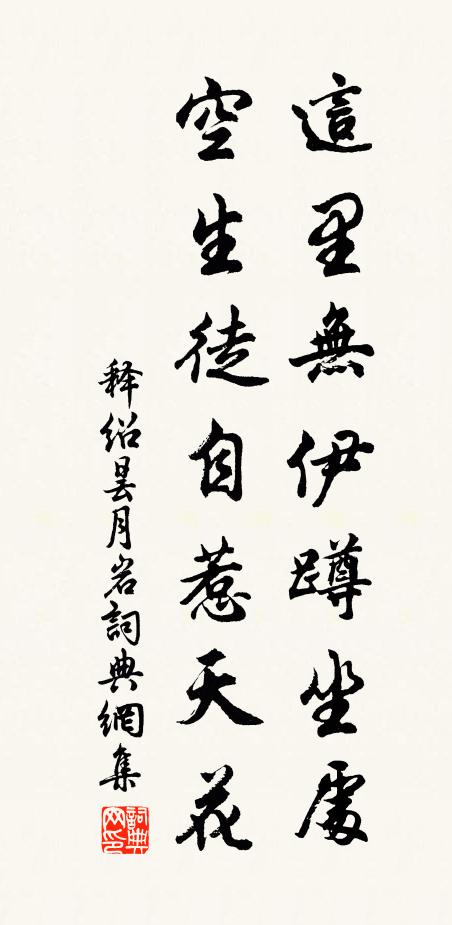 這里無伊蹲坐處
空生徒自惹天花
释绍曇月岩詞典網集
詞典网印